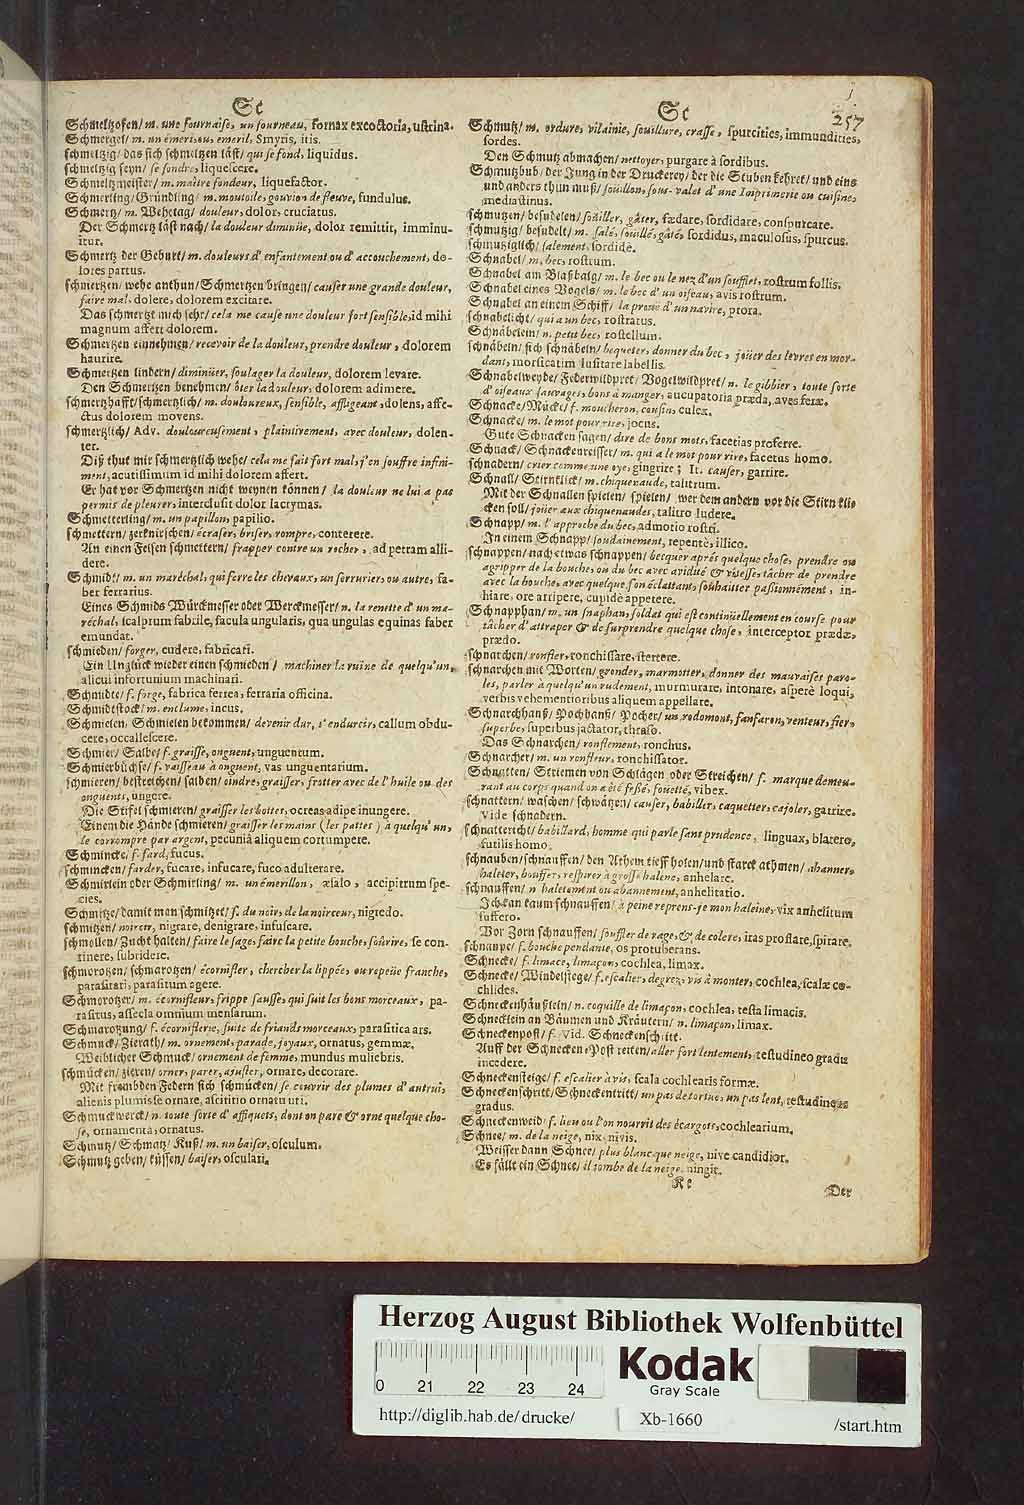 Sc
Schmeltzofen/ m. une fournaise, un fourneau, fornax excoctoria, ustrina.
Schmergel/ m. un émeri, ou, emeril, Smyris, itis.
schmeltzig/ das sich schmeltzen läst/ qui se fond, liquidus.
schmeltzig seyn/ se fondre, liquescere.
Schmeltzmeister/ m. maître fondeur, liquefactor.
Schmerling/ Gründling/ m. moutoile, gouvion de fleuve, fundulus.
Schmertz/ m. Wehetag/ douleur, dolor, cruciatus.
Der Schmertz läst nach/ la douleur diminüe, dolor remittit, imminu-
itur.
Schmertz der Geburt/ m. douleurs d' enfantement ou d' accouchement, do-
lores partus.
schmertzen/ wehe anthun/ Schmertzen bringen/ causer une grande douleur,
faire mal, dolere, dolorem excitare.
Das schmertzt mich sehr/ cela me cause une douleur fort sensible, id mihi
magnum affert dolorem.
Schmertzen einnehmen/ recevoir de la douleur, prendre douleur, dolorem
haurire.
Schmertzen lindern/ diminüer, soulager la douleur, dolorem levare.
Den Schmertzen benehmen/ ôter la douleur, dolorem adimere.
schmertzhafft/ schmertzlich/ m. douloureux, sensible, affligeant, dolens, affe-
ctus dolorem movens.
schmertzlich/ Adv. douloureusement, plaintivement, avec douleur, dolen-
ter.
Diß thut mir schmertzlich wehe/ cela me fait fort mal, j'en souffre infini-
ment, acutissimum id mihi dolorem affert.
Er hat vor Schmertzen nicht weynen können/ la douleur ne lui a pas
permis de pleurer, interclusit dolor lacrymas.
Schmetterling/ m. un papillon, papilio.
schmettern/ zerknirschen/ écraser, briser, rompre, conterere.
An einen Felsen schmettern/ frapper contre un rocher, ad petram alli-
dere.
Schmidt/ m. un maréchal, qui ferre les chevaux, un serrurier, ou autre, fa-
ber ferrarius.
Eines Schmids Würckmesser oder Werckmesser/ n. la renette d' un ma-
réchal, scalprum fabrile, facula ungularis, qua ungulas equinas faber
emundat.
schmieden/ forger, cudere, fabricari.
Ein Unglück wieder einen schmieden/ machiner la ruine de quelqu'un,
alicui infortunium machinari.
Schmidte/ f. forge, fabrica ferrea, ferraria officina.
Schmidtstock/ m. enclume, incus.
Schmielen, Schmielen bekommen/ devenir dur, s' endurcir, callum obdu-
cere, occallescere.
Schmier/ Salbe/ f. graisse, onguent, unguentum.
Schmierbüchse/ f. vaisseau à onguent, vas unguentarium.
schmieren/ bestreichen/ salben/ oindre, graisser, frotter avec de l' huile ou des
onguents, ungere.
Die Stifel schmieren/ graisser les bottes, ocreas adipe inungere.
Einem die Hände schmieren/ graisser les mains (les pattes) à quelqu' un,
le corrompre par argent, pecuniâ aliquem corrumpere.
Schmincke/ f. fard, fucus.
schmincken/ farder, fucare, infucare, fuco adulterare.
Schmirlein oder Schmirling/ m. un émerillon, æsalo, accipitrum spe-
cies.
Schmitze/ damit man schmitzet/ f. du noir, de la noirceur, nigredo.
schmitzen/ noircir, nigrare, denigrare, infuscare.
schmollen/ Zucht halten/ faire le sage, faire la petite bouche, soûrire, se con-
tinere, subridere.
schmorotzen/ schmarotzen/ écornifler, chercher la lippée, ou repeüe franche,
parasitari, parasitum agere.
Schmorotzer/ m. écornifleur, frippe sausse, qui suit les bons morceaux, pa-
rasitus, assecla omnium mensarum.
Schmarotzung/ f. écorniflerie, suite de friands morceaux, parasitica ars.
Schmuck/ Zierath/ m. ornement, parade, joyaux, ornatus, gemmæ.
Weiblicher Schmuck/ ornement de femme, mundus muliebris.
schmücken/ zieren/ orner, parer, ajuster, ornare, decorare.
Mit frembden Federn sich schmücken/ se couvrir des plumes d' autrui,
alienis plumis se ornare, ascititio ornatu uti.
Schmuckwerck/ n. toute sorte d' affiquets, dont on pare & orne quelque cho-
se, ornamenta, ornatus.
Schmutz/ Schmatz/ Kuß/ m. un baiser, osculum.
Schmutz geben/ küssen/ baiser, osculari.
Sc
257
Schmutz/ m. ordure, vilainie, souillure, crasse, spurcities, immundities,
sordes.
Den Schmutz abmachen/ nettoyer, purgare à sordibus.
Schmutzbub/ der Jung in der Druckerey/ der die Stuben kehret/ und eins
und anders thun muß/ souillon, sous-valet d' une Imprimerie ou cuisine,
mediastinus.
schmutzen/ besudelen/ soüiller, gâter, fædare, sordidare, conspurcare.
schmutzig/ besudelt/ m. salé, souillé, gâté, sordidus, maculosus, spurcus.
schmutziglich/ salement, sordidè.
Schnabel/ m, bec, rostrum.
Schnabel am Blaßbalg/ m. le bec ou le nez d'un soufflet, rostrum follis.
Schnabel eines Vogels/ m. le bec d' un oiseau, avis rostrum.
Schnabel an einem Schiff/ la proüe d' un navire, prora.
schnabelicht/ qui a un bec, rostratus.
Schnäbelein/ n. petit bec, rostellum.
schnäbeln/ sich schnäbeln/ bequeter, donner du bec, joüer des levres en mor-
dant, morsicatim lusitare labellis.
Schnabelweyde/ Federwildpret/ Vogelwildpret/ n. le gibbier, toute sorte
d' oiseaux sauvages, bons à manger, aucupatoria præda, aves feræ.
Schnacke/ Mücke/ f. moucheron, cousin, culex.
Schnacke/ m. le mot pour rire, jocus.
Gute Schnacken sagen/ dire de bons mots, facetias proferre.
Schnack/ Schnackenreisser/ m. qui a le mot pour rire, facetus homo.
schnadern/ crier comme une oye, gingrire; It. causer, garrire.
Schnall/ Stirnklick/ m. chiquenaude, talitrum.
Mit der Schnallen spielen/ spielen/ wer dem andern vor die Stirn kli-
cken soll/ joüer aux chiquenaudes, talitro ludere.
Schnapp/ m. l' approche du bec, admotio rostri.
In einem Schnapp/ soudainement, repentè, illico.
schnappen/ nach etwas schnappen/ becquer aprés quelque chose, prendre ou
agripper de la bouche, ou du bec avec avidité & vîtesse, tâcher de prendre
avec la bouche, avec quelque son éclattant, souhaitter passionnément, in-
hiare, ore arripere, cupidè appetere.
Schnapphan/ m. un snaphan, soldat qui est continüellement en course pour
tâcher d' attraper & de surprendre quelque chose, interceptor prædæ,
prædo.
schnarchen/ ronfler, ronchissare, stertere.
schnarchen mit Worten/ gronder, marmotter, donner des mauvaises paro-
les, parler à quelqu'un rudement, murmurare, intonare, asperè loqui,
verbis vehementioribus aliquem appellare.
Schnarchhanß/ Pochhanß/ Pocher/ un rodomont, fanfaron, venteur, fier,
superbe, superbus jactator, thraso.
Das Schnarchen/ ronflement, ronchus.
Schnarcher/ m. un ronfleur, ronchissator.
Schnatten/ Striemen von Schlägen oder Streichen/ f. marque demeu-
rant au corps quand on a êté fessé, foüetté, vibex.
schnattern/ waschen/ schwätzen/ causer, babiller, caquetter, cajoler, garrire.
Vide schnadern.
schnattericht/ babillard, homme qui parle sans prudence, linguax, blatero,
futilis homo.
schnauben/ schnauffen/ den Athem tieff holen/ und starck athmen/ abanner,
haleter, bouffer, respirer à grosse halene, anhelare.
schnauffen/ n haletement ou abannement, anhelitatio.
Ich kan kaum schnauffen/ à peine reprens-je mon haleine, vix anhelitum
suffero.
Vor Zorn schnauffen/ souffler de rage, & de colere, iras proflare, spirare.
schnauppe/ f. bouche pendante, os protuberans.
Schnecke/ f. limace, limaçon, cochlea, limax.
Schnecke/ Windelstege/ f. escalier, degrez, vis à monter, cochlea, scalæ co-
chlides.
Schneckenhäußlein/ n. coquille de limaçon, cochlea, testa limacis.
Schnecklein an Bäumen und Kräutern/ n. limaçon, limax.
Schneckenpost/ f. Vid. Schneckenschritt.
Auff der Schnecken-Post reiten/ aller fort lentement, testudineo gradu
incedere.
Schneckensteige/ f. escalier à vis, scala cochlearis formæ.
Schneckenschritt/ Schneckentritt/ un pas de tortue, un pas lent, testudineus
gradus.
Schneckenweid/ f. lieu ou l'on nourrit des écargots, cochlearium.
Schnee/ m. de la neige, nix, nivis.
Weisser dann Schnee/ plus blanc que neige, nive candidior.
Es fällt ein Schnee/ il tombe de la neige, ningit.
Kk
Der
Herzog August Bibliothek Wolfenbüttel
Kodak
Gray Scale
0 21 22 23 24
http://diglib.hab.de/drucke/
Xb-1660
/start.htm